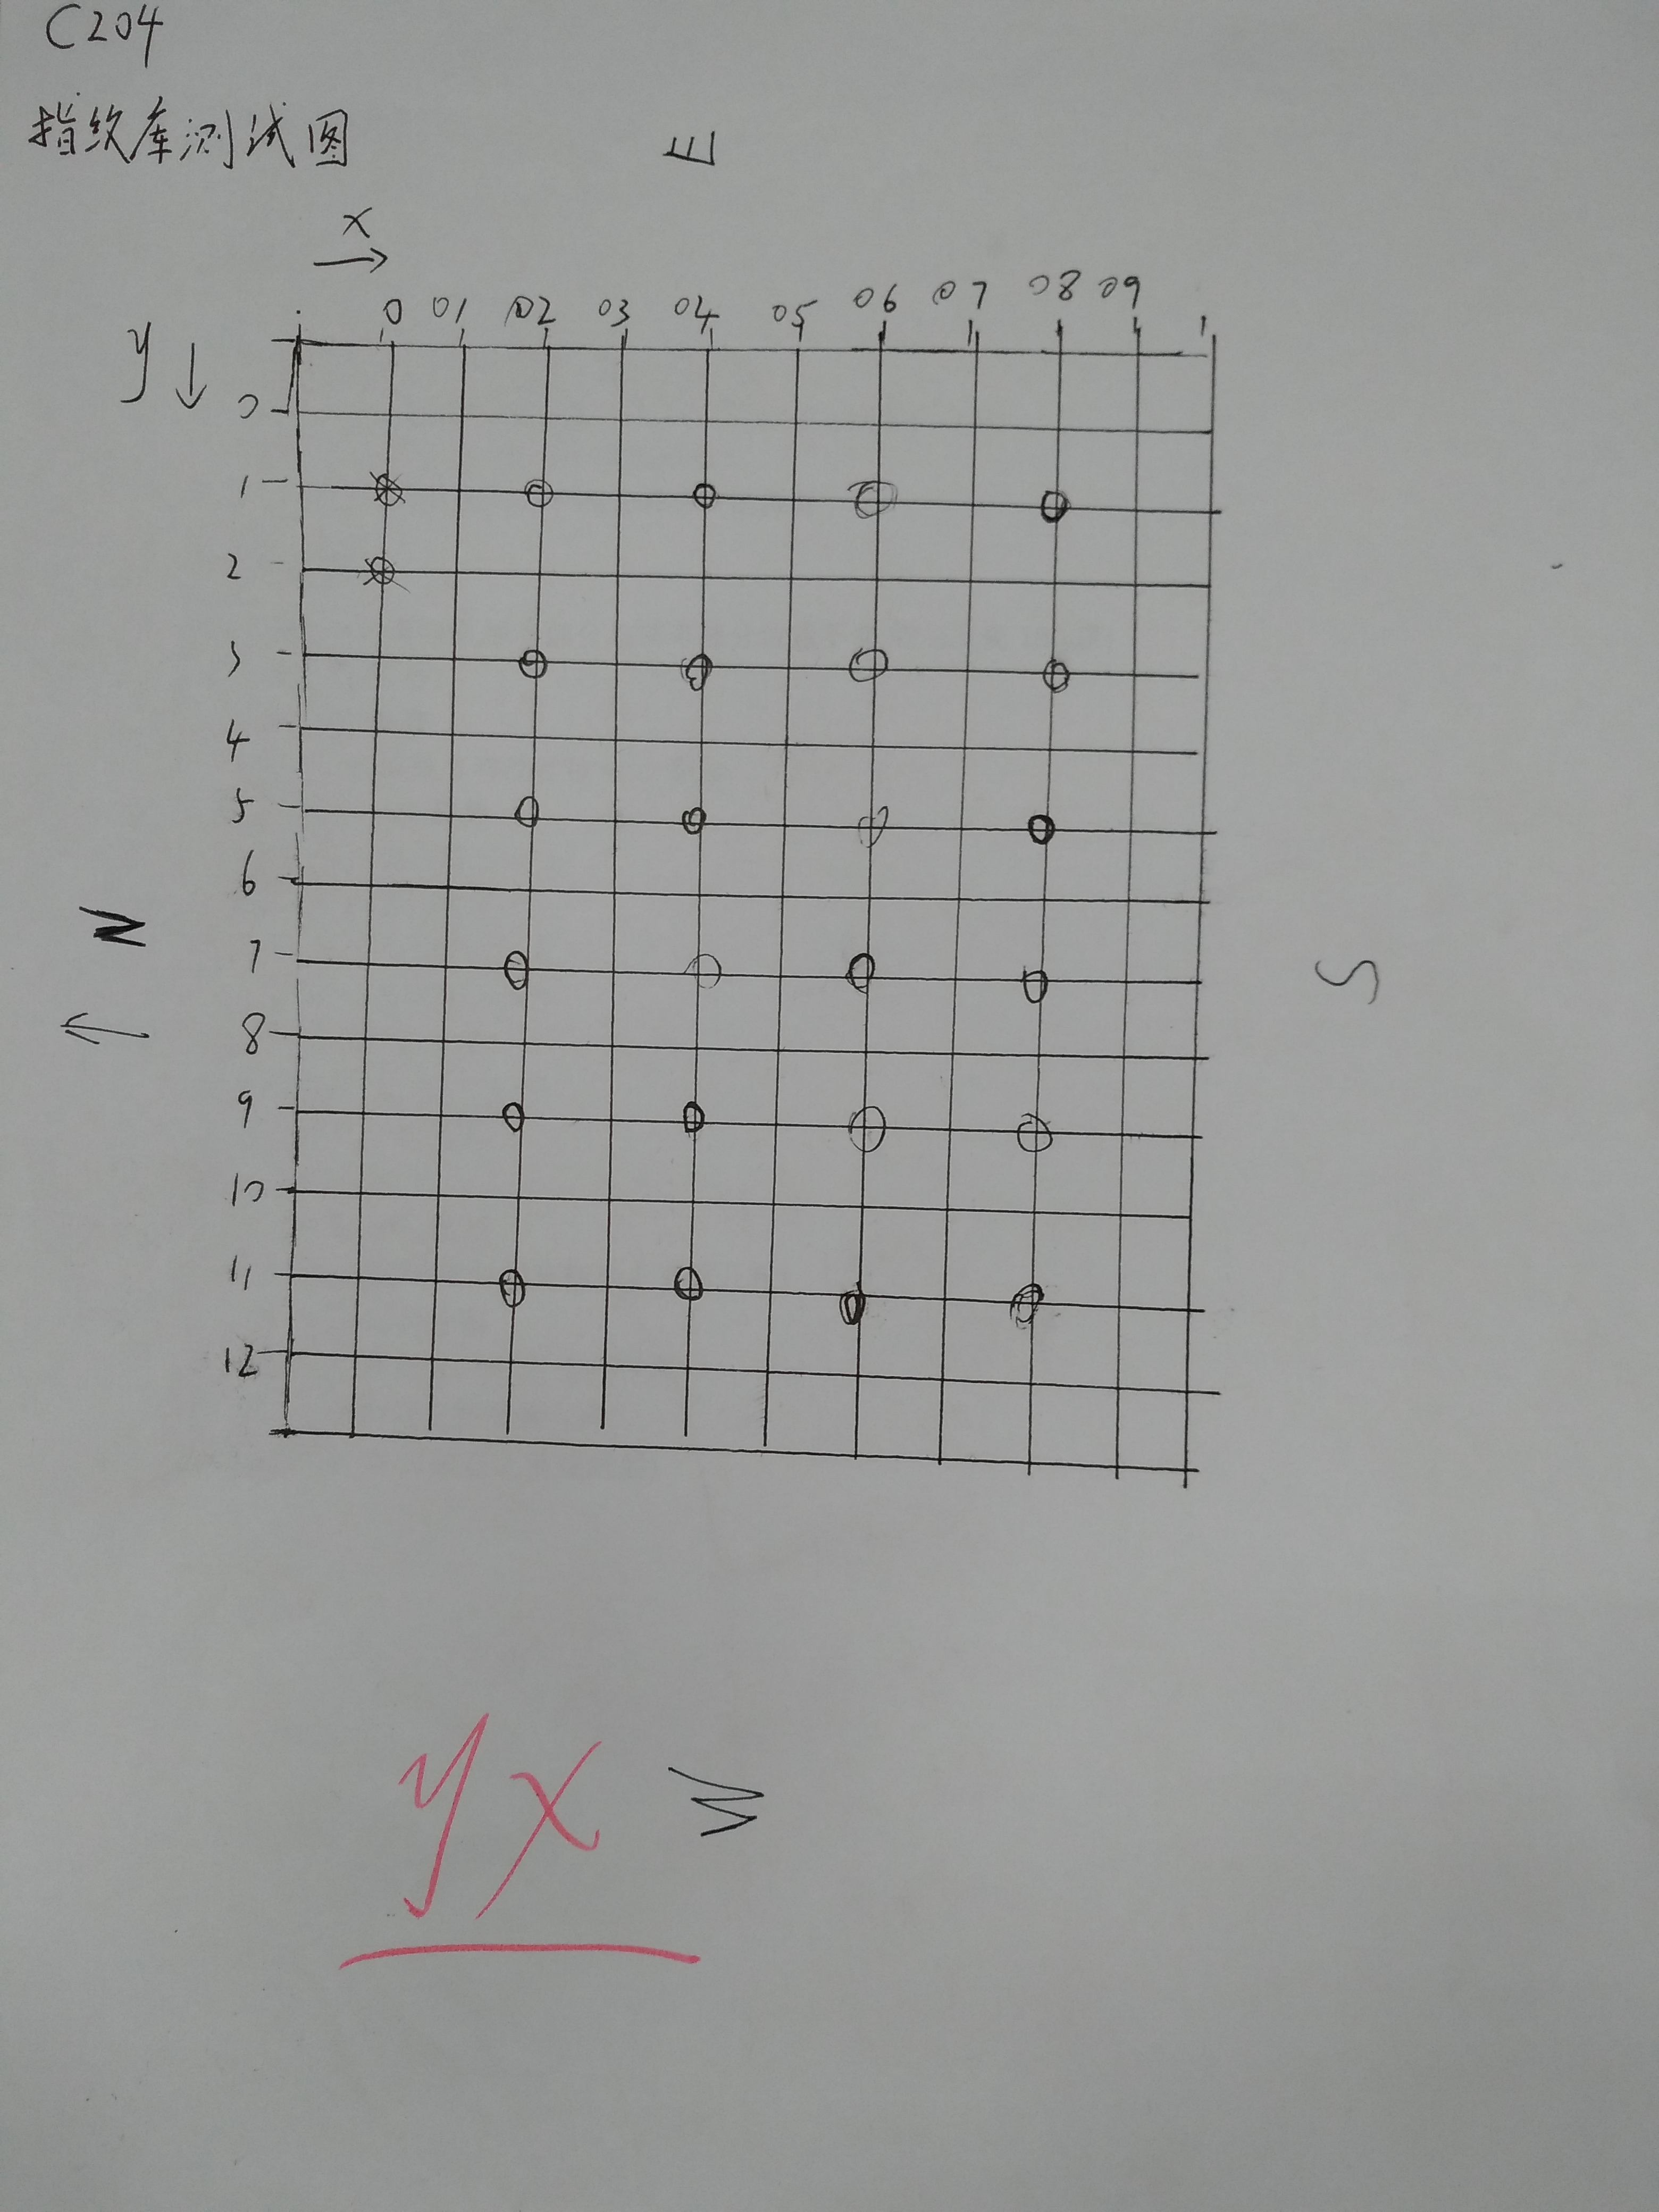 C204
指纹库测试图
E
x
0 01 02 03 04 05 06 07 08 09 1
y
0
1
2
3
4
5
6
N
7
S
8
9
10
11
12
yx
W